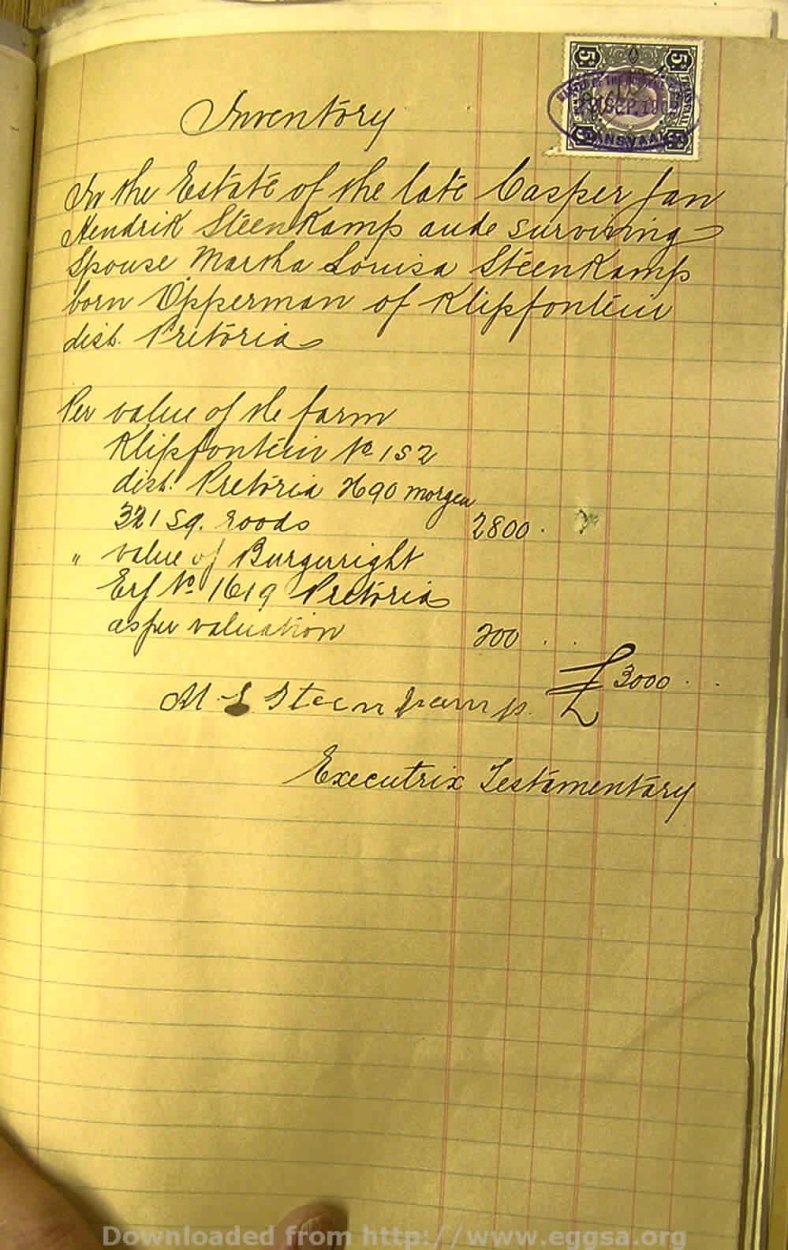 Inventory
In the Estate of the late Casper Jan
Hendrik Steenkamp ande surviving
Spouse Martha Louisa Steenkamp
born Opperman of Klipfontein
dist. Pretoria
Per value of the farm
Klipfontein No 152
dist. Pretoria 2690 morgen
321 Sq. roods 2800 .
" value of Burgerright
Erf No 1619 Pretoria
as per valuation 200 . .
£ 3000 . .
M L Steenkamp.
Executrix Testamentary
5s 5s
MASTER OF THE
SEP 19
TRANSVAAL
Downloaded from http://www.eggsa.org